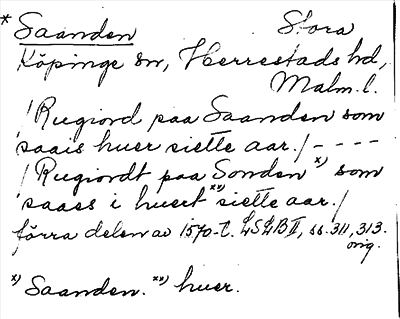 * Saanden Stora
Köpinge sn, Herrestads hd,
Malm. l.
/Rugiord paa Saanden som
saais huer siette aar./ - - - -
/Rugiordt paa Sonden x) som
saaes i huert xx) siette aar./
förra delen av 1570-t. LSLB II, ss. 311, 313.
orig.
x) Saanden. xx) huer.